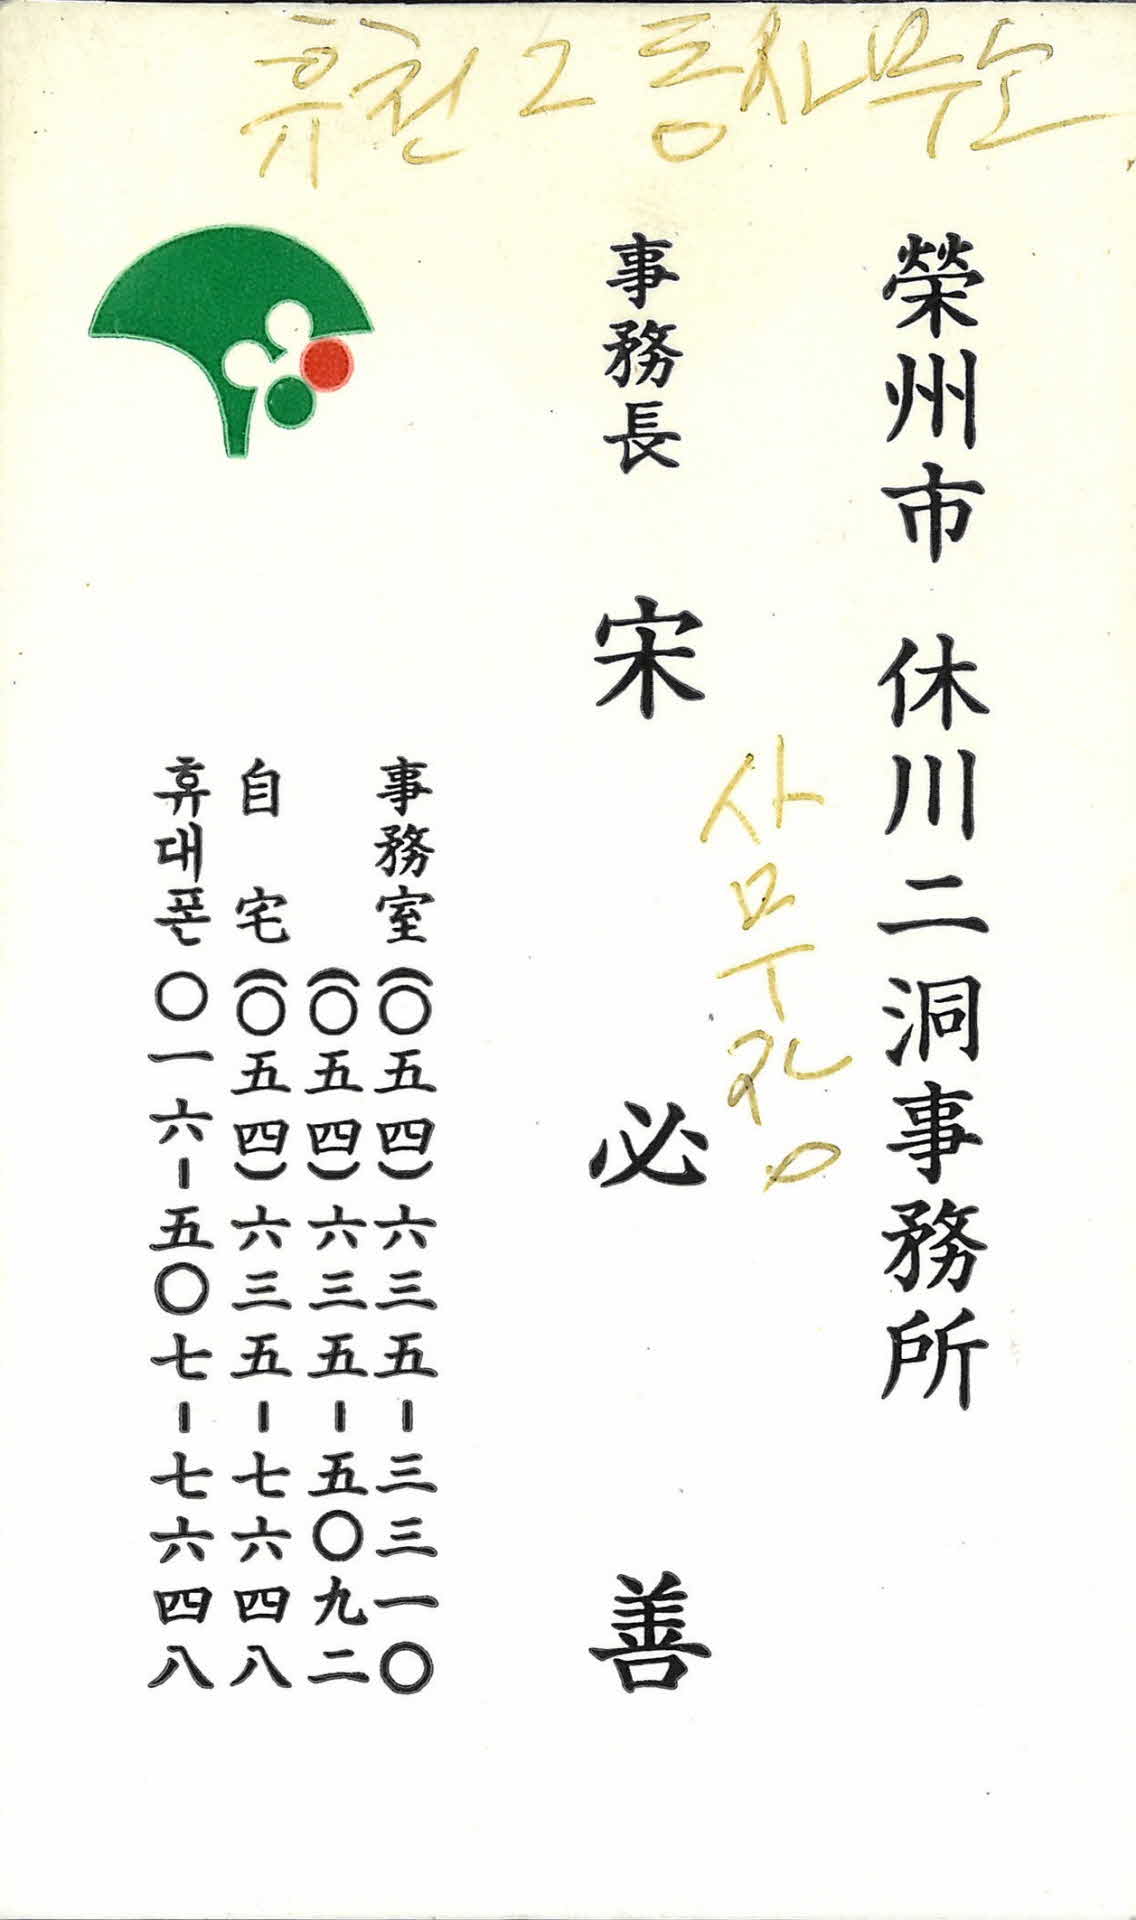 휴천2동사무소
榮州市 休川二洞事務所
사무장
事務長 宋必善
事務室 (〇五四)六三五-三三一〇
(〇五四)六三五-五〇九二
自宅 (〇五四)六三五-七六四八
휴대폰 〇一六-五〇七-七六四八